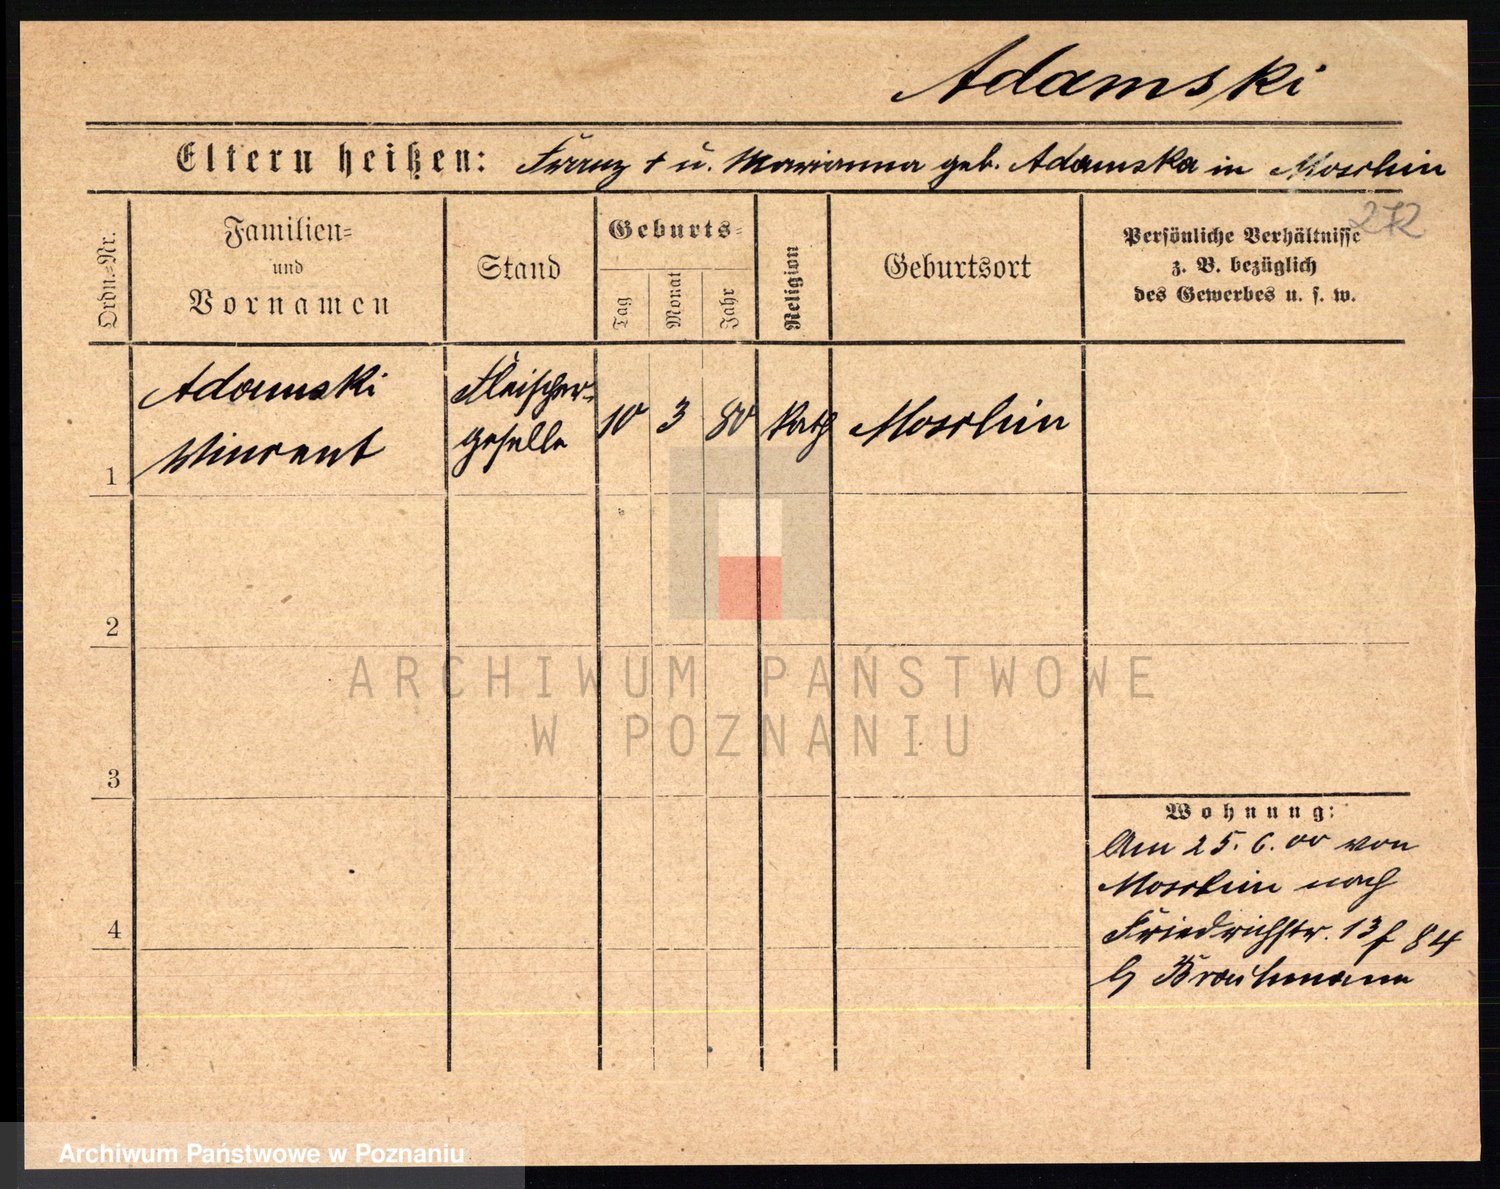 Adamski
Eltern heißen: Franz † u. Marianna geb. Adamska in Moschin
272
Ordn.-Nr.
Familien-
und
Vornamen
Stand
Geburts-
Tag
Monat
Jahr
Religion
Geburtsort
Persönliche Verhältnisse
z. B. bezüglich
des Gewerbes u. s. w.
Adamski
Vincent
Fleischer-
geselle
10 3 80 kath Moschin
1
2
ARCHIWUM PAŃSTWOWE
W POZNANIU
3
Wohnung:
Am 25. 6. 00 von
Moschin nach
Friedrichstr. 13 f 84
4
Archiwum Państwowe w Poznaniu